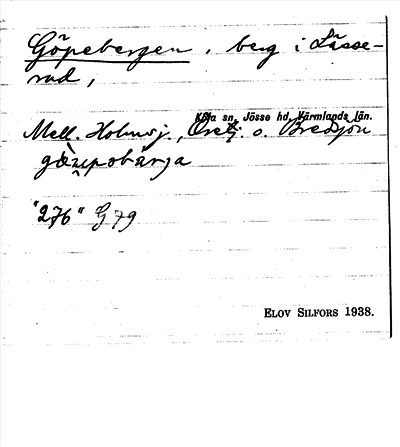 Göpebergen, berg i Lasse-
rud,
Köla sn, Jösse hd, Värmlands län.
Mell. Holmsj., o. Bredsjön
"276" G 79
ELOV SILFORS 1938.